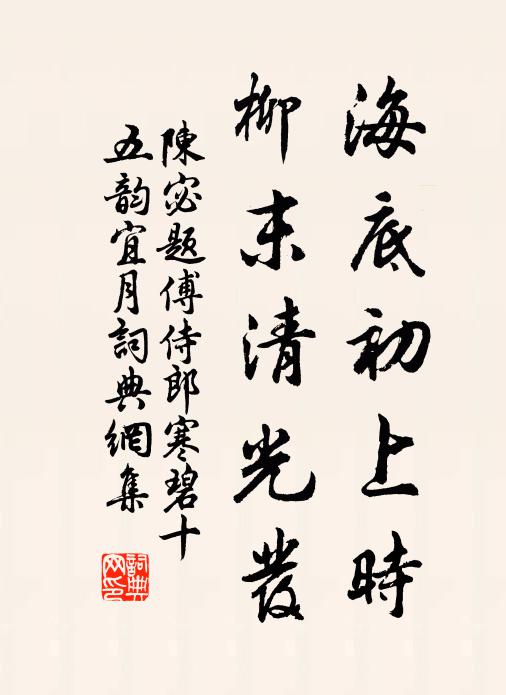 海底初上時
柳末清光發
陳宓題傅侍郎寒碧十
五韵宜月詞典網集
詞典
网印